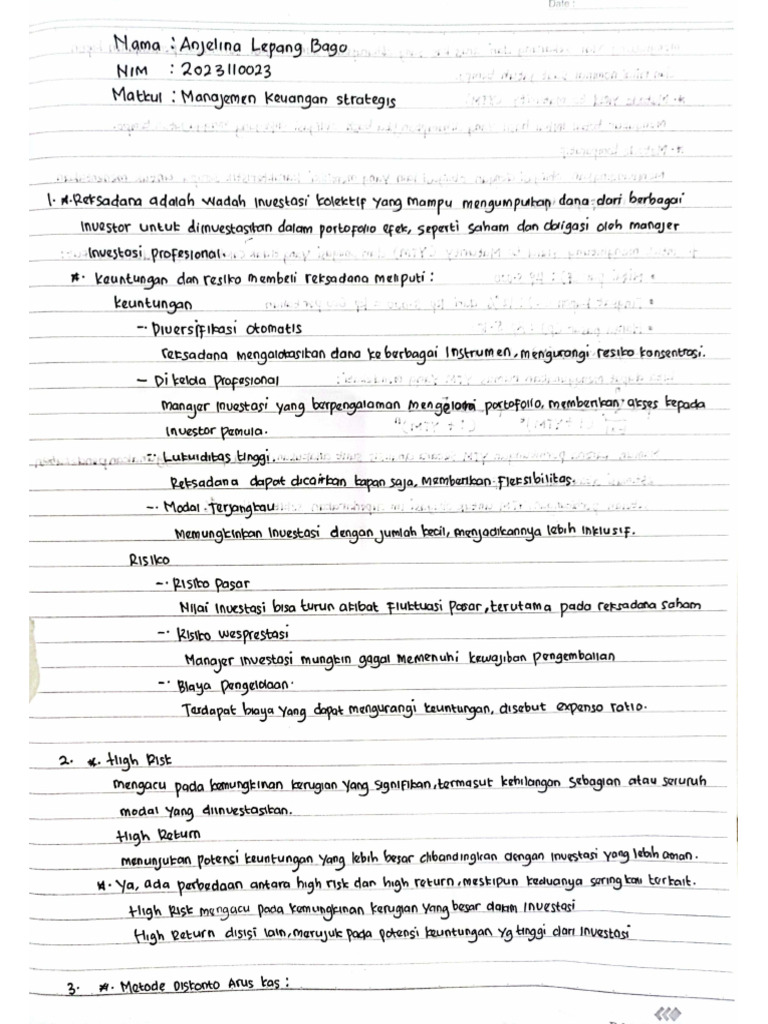 Date :
Nama : Anjelina Lepang Bago
NIM : 2023110023
Matkul : Manajemen Keuangan strategis
1. *. Reksadana adalah wadah investasi kolektif yang mampu mengumpulkan dana dari berbagai
investor untuk diinvestasikan dalam portofolio efek, seperti saham dan obligasi oleh manajer
investasi profesional.
*. Keuntungan dan resiko membeli reksadana meliputi :
Keuntungan
-. Diversifikasi otomatis
reksadana mengalokasikan dana ke berbagai instrumen, mengurangi resiko konsentrasi.
- Di kelola profesional
Manajer investasi yang berpengalaman mengelola portofolio, memberikan akses kepada
investor pemula.
-. Lukuiditas tinggi.
Reksadana dapat dicairkan kapan saja, memberikan fleksibilitas.
-. Modal terjangkau
Memungkinkan investasi dengan jumlah kecil, menjadikannya lebih inklusif.
Risiko
-. Risiko pasar
Nilai investasi bisa turun akibat fluktuasi pasar, terutama pada reksadana saham
-. Risiko wesprestasi
Manajer investasi mungkin gagal memenuhi kewajiban pengembalian
-. Biaya pengelolaan.
Terdapat biaya yang dapat mengurangi keuntungan, disebut expenso ratio.
2. *. High Risk
mengacu pada kemungkinan kerugian yang signifikan, termasuk kehilangan sebagian atau seruruh
modal yang diinvestasikan.
High Return
menunjukan potensi keuntungan yang lebih besar dibandingkan dengan investasi yang lebih aman.
*. Ya, ada perbedaan antara high risk dan high return, meskipun keduanya sering kali terkait.
High Risk mengacu pada kemungkinan kerugian yang besar dalam investasi
High Return disisi lain, merujuk pada potensi keuntungan yg tinggi dari investasi
3. *. Metode Diskonto Arus kas :